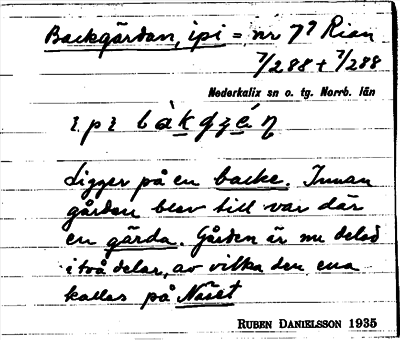 Backgärdan, ipi = nr 7⁷ Rian
7/288 + 7/288
Nederkalix sn o. tg. Norrb. län
Ligger på en backe. Innan
gården blev till var där
en gärda. Gården är nu delad
i två delar, av vilka den ena
kallas på Näset
RUBEN DANIELSSON 1935